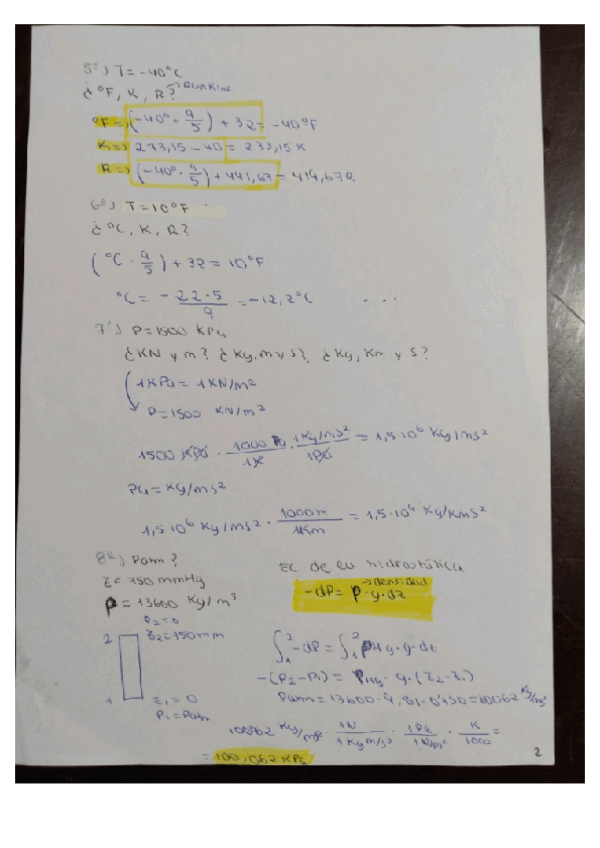 5º) T = -40ºC
¿ºF, K, R? → Rankine
ºF => (-40º · 9/5) + 32 = -40ºF
K => 273,15 - 40 = 233,15 K
R => (-40º · 9/5) + 491,67 = 419,67R
6º) T = 10ºF
¿ºC, K, R?
(ºC · 9/5) + 32 = 10ºF
ºC = -22·5/9 = -12,2ºC ...
7º) P = 1500 KPa
¿KN y m? ¿Kg, m y s? ¿Kg, Km y s?
1KPa = 1KN/m²
P = 1500 KN/m²
1500 KPa · 1000 Pa/1K · 1Kg/ms²/1Pa = 1,5·10⁶ Kg/ms²
Pa = Kg/ms²
1,5·10⁶ Kg/ms² · 1000m/1Km = 1,5·10⁹ Kg/Kms²
8º) Patm?
Ec de la hidrostática
z = 750 mmHg
→ densidad
-dP = ρ·g·dz
ρ = 13600 Kg/m³
P2 = 0
2 z2 = 750mm
∫₁² -dP = ∫₁² ρHg·g·dz
-(P2-P1) = ρHg·g·(z2-z1)
1 z1 = 0
P1 = Patm
Patm = 13600·9,81·0'750 = 100062 Kg/ms²
100062 Kg/ms² · 1N/1Kg m/s² · 1Pa/1N/m² · K/1000 =
= 100,062 KPa
2